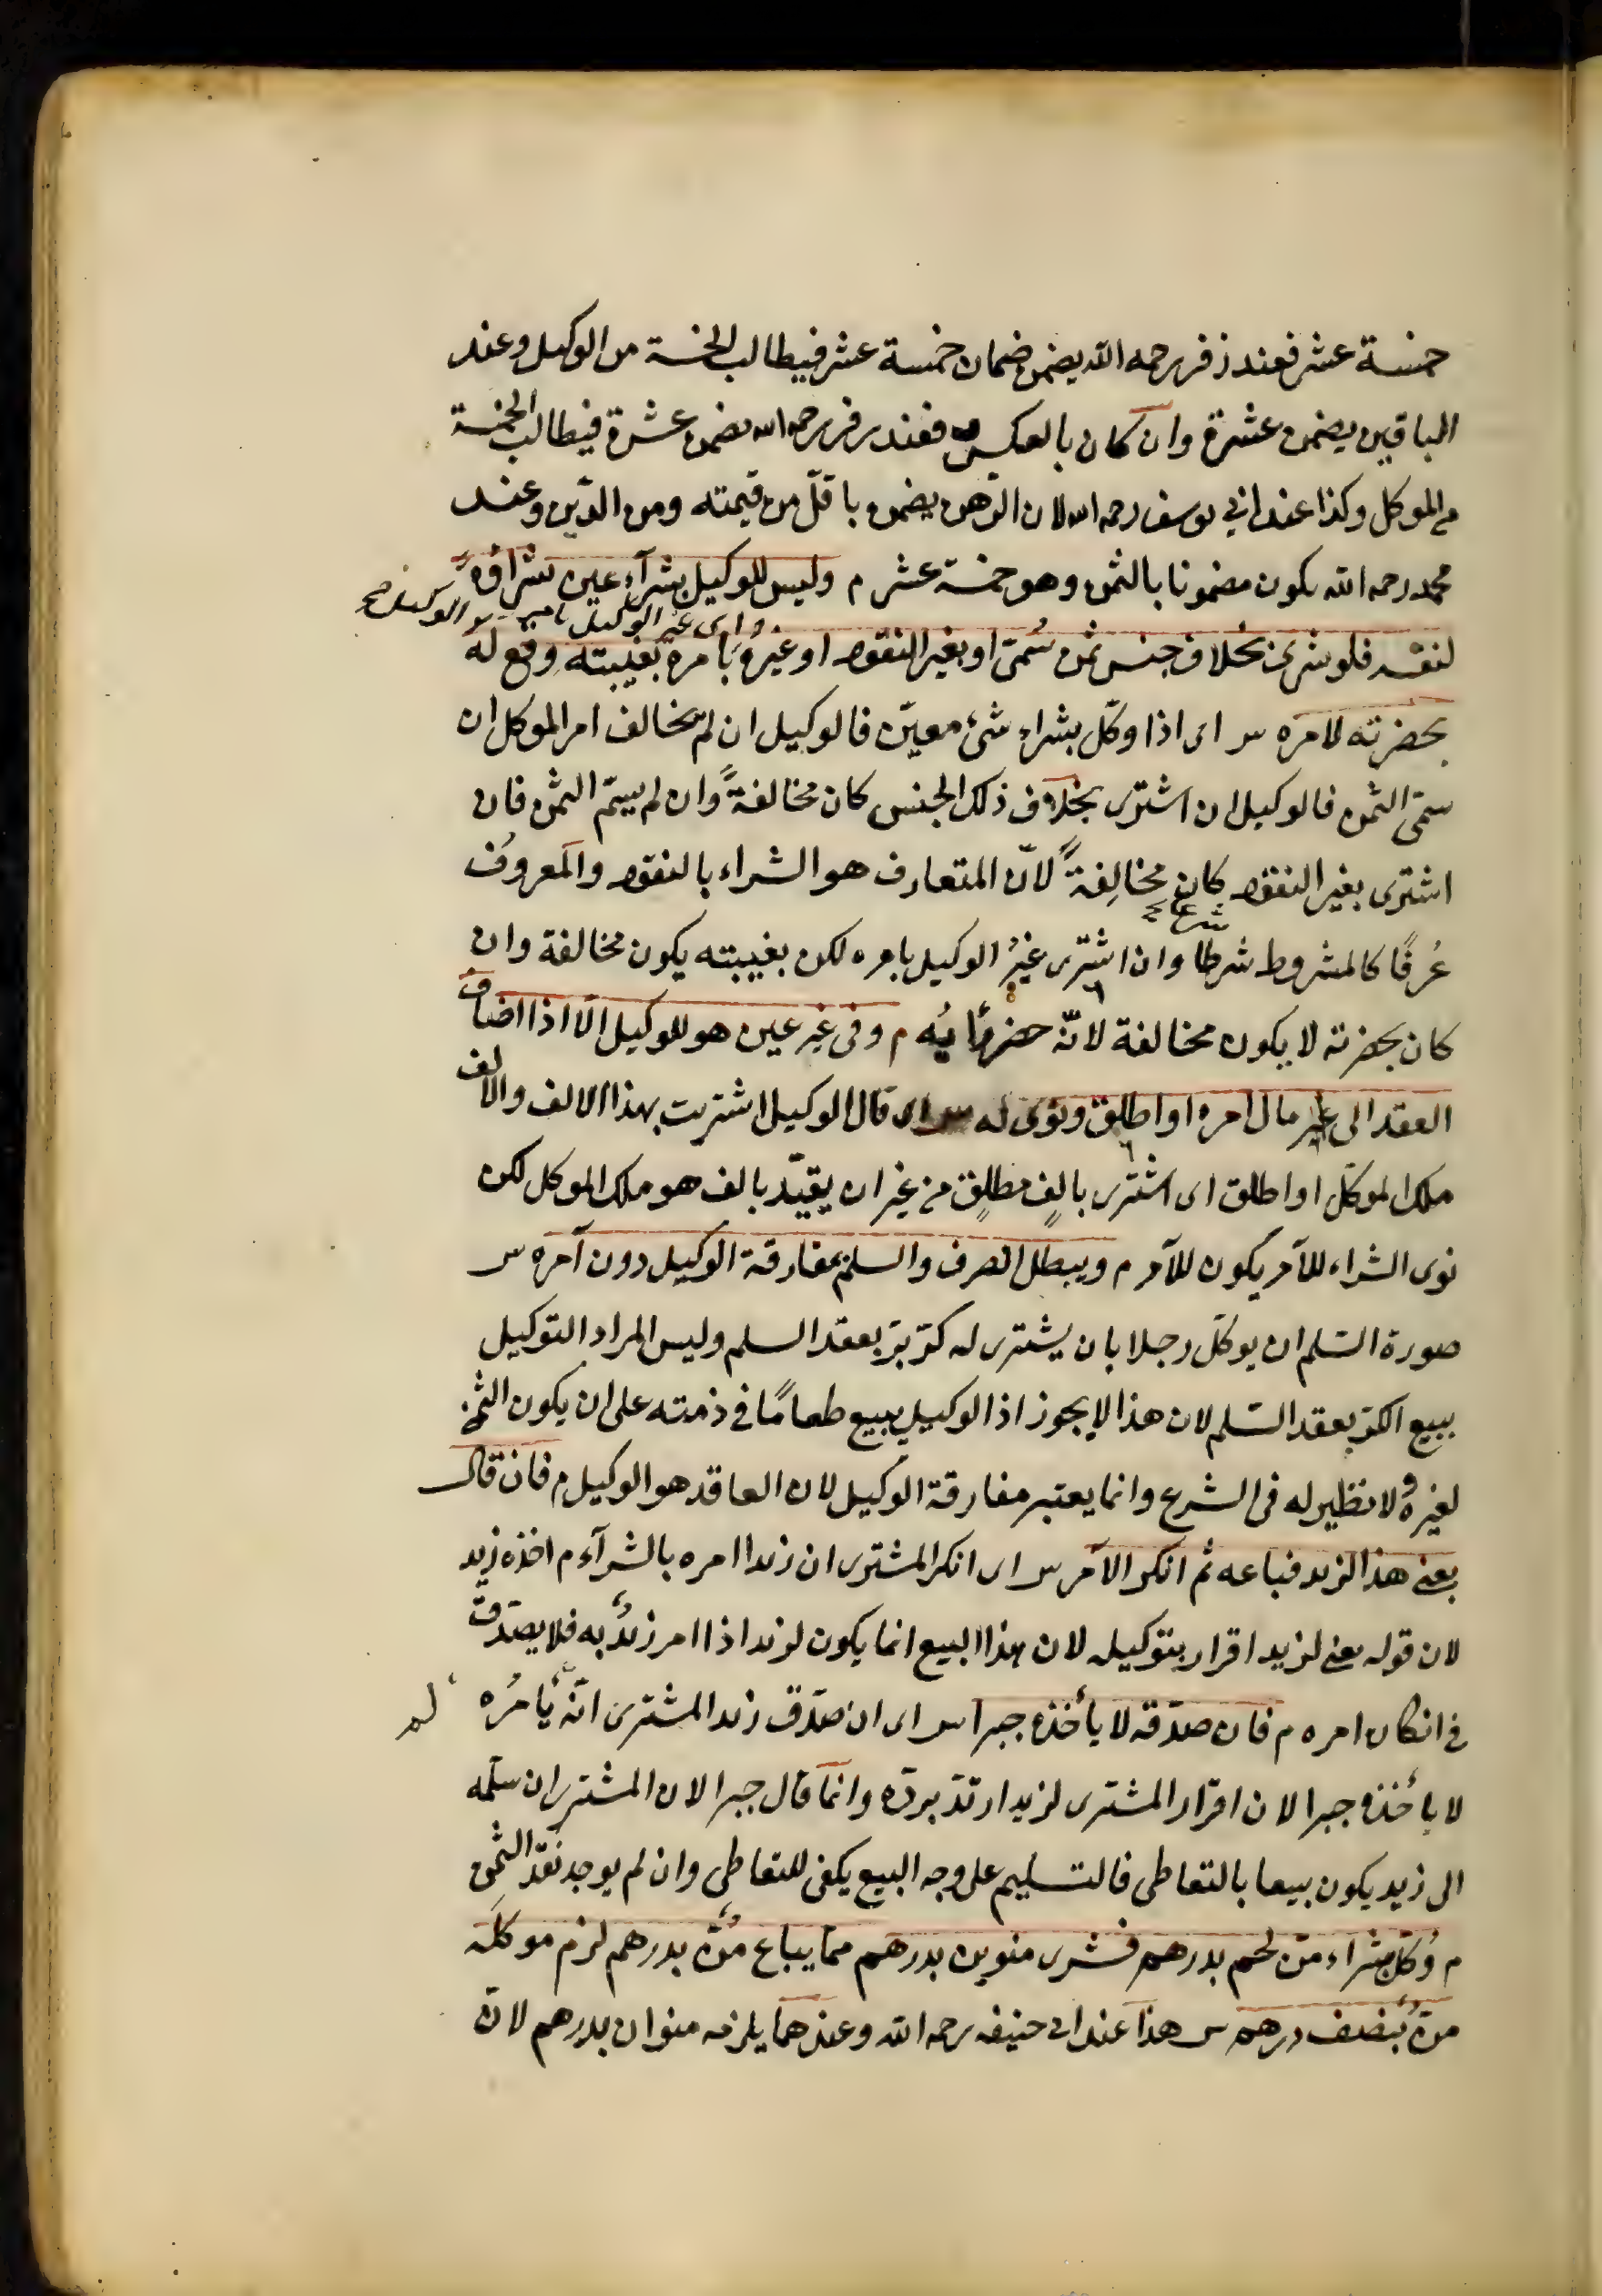 خمسة عشر فعند زفر رحمه الله يضمن ضمان خمسة عشر فيطالب الخمسة من الوكيل وعند
الباقين يضمن عشرة وان كان بالعكس فعند زفر رحمه الله يضمن عشرة فيطالب الخمسة
من الموكل وكذا عند ابي يوسف رحمه الله لان الرّهن يضمن باقلّ من قيمته ومن الدّين وعند
محمد رحمه الله يكون مضمونا بالثمن وهو خمسة عشر م وليس للوكيل بشرآء عين شراؤه
اى غير الوكيل بامر الوكيل صح
لنفسه فلو شرى بخلاف جنس ثمن سُمىّ او بغير النقود او غيرُه بامره بغيبته وقع له
بحضرته لامره س اى اذا وكّل بشراء شئ معيّن فالوكيل ان لم يخالف امر الموكل ان
سمىّ الثمن فالوكيل ان اشترى بخلاف ذلك الجنس كان مخالفةً وان لم يسمّ الثمن فان
اشترى بغير النقود كان مخالفةً لانّ المتعارف هو الشراء بالنقود والمعروف
شرعا صح
عُرفًا كالمشروط شرطا وان اشترى غيرُ الوكيل بامره لكن بغيبته يكون مخالفة وان
كان بحضرته لا يكون مخالفة لانّه حضر رأيُه م وفى غير عين هو للوكيل الّا اذا اضاف
العقد الى مال امره او اطلق ونوى له س اى قال الوكيل اشتريت بهذا الالف والالف
ملك الموكّل او اطلق اى اشترى بالفٍ مطلقٍ من غير ان يقيّد بالف هو ملك الموكل لكن
نوى الشراء للآمر يكون للآمر م ويبطل الصرف والسلم بمفارقة الوكيل دون آمره س
صورة السّلم ان يوكّل رجلا بان يشترى له كرّ برّ بعقد السلم وليس المراد التوكيل
ببيع الكرّ بعقد السّلم لان هذا لا يجوز اذ الوكيل يبيع طعامًا فى ذمته على ان يكون الثمن
لغيره ولا نظير له فى الشرع وانما يعتبر مفارقة الوكيل لان العاقد هو الوكيل م فان قال
بعنى هذا لزيد فباعه ثم انكر الآمر س اى انكر المشترى ان زيدا امره بالشرآء م اخذه زيد
لان قوله بعنى لزيد اقرار بتوكيله لان هذا البيع انما يكون لزيد اذا امر زيدٌ به فلا يصدّق
فى انكار امره م فان صدّقه لا يأخذه جبرا س اى ان صدّق زيد المشترى انّه لم يأمُره
لا يأخذه جبرا لان اقرار المشترى لزيد ارتدّ بردّه وانما قال جبرا لان المشترى ان سلّمه
الى زيد يكون بيعا بالتعاطى فالتسليم على وجه البيع يكفى للتعاطى وان لم يوجد نقد الثمن
م وُكّل بشراء منّ لحم بدرهم فشرى منوين بدرهم ممّا يباع منٌّ بدرهم لزم موكّله
منّ بنصف درهم س هذا عند ابى حنيفه رحمه الله وعندهما يلزمه منوان بدرهم لانّ